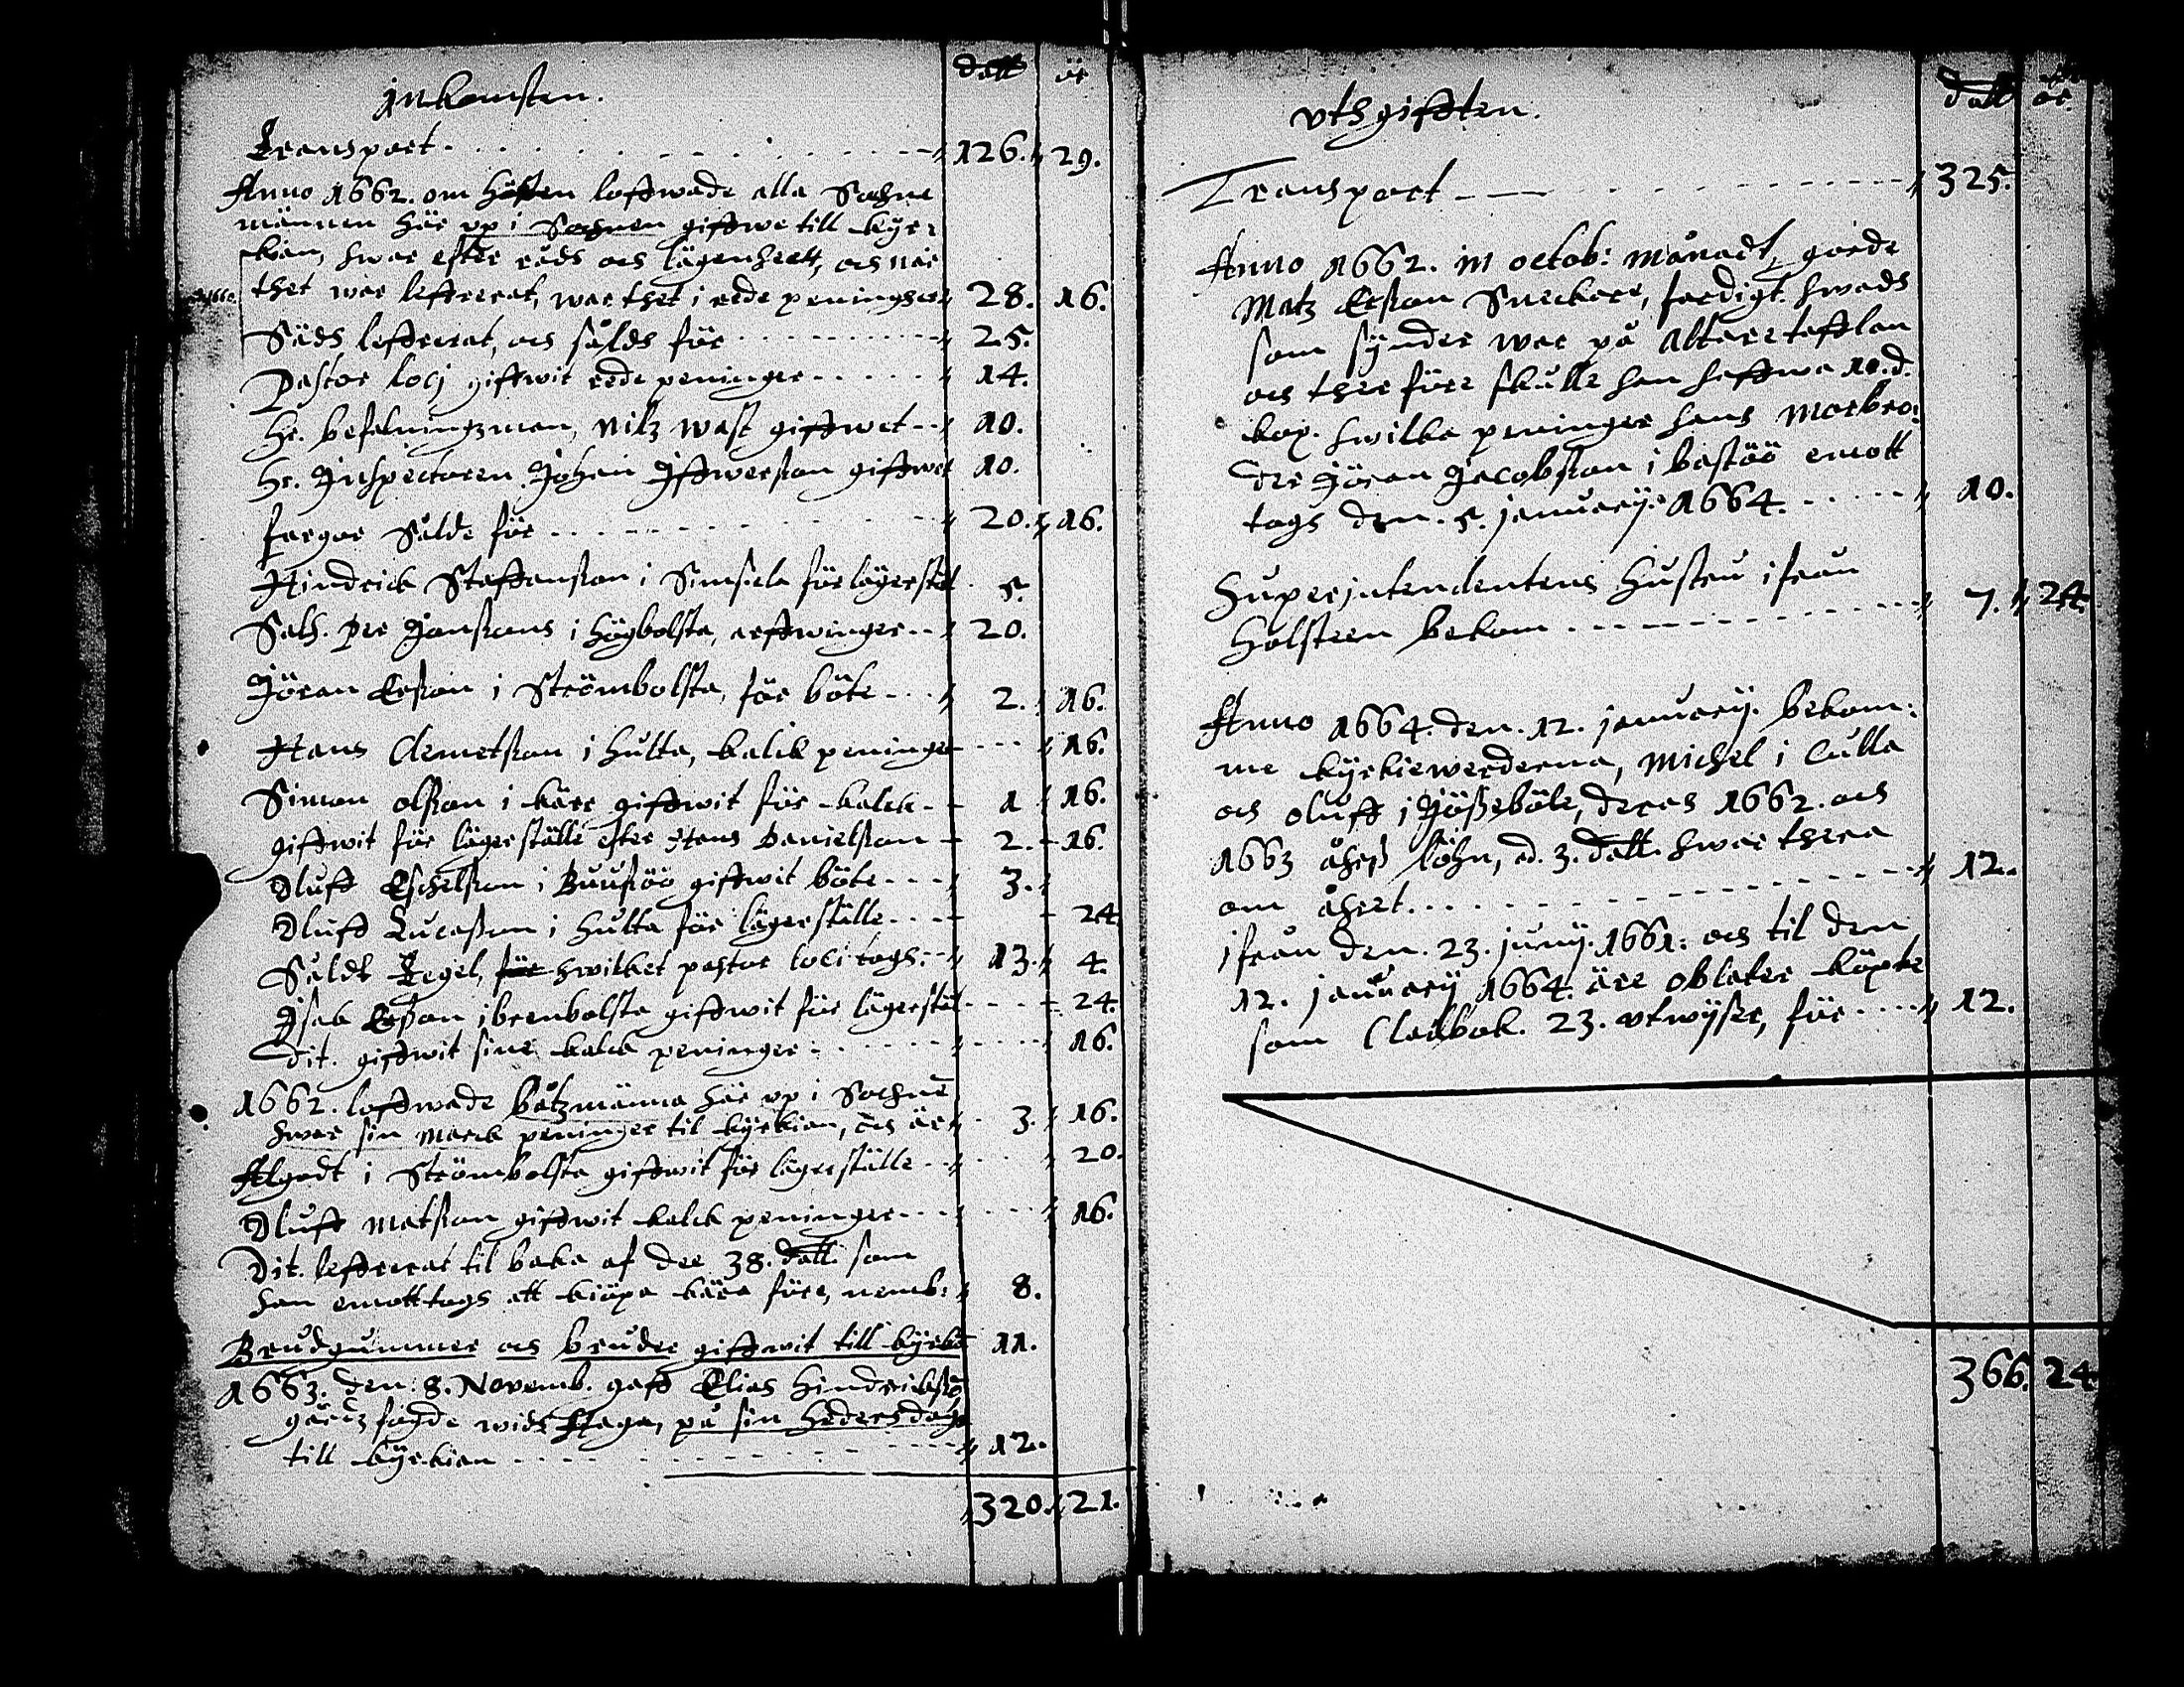 Inkomsten. dall ör
Transport . . . 126. 29.
Anno 1662. om hösten loffwade alla Sochne
männen här up i Sochnen giffwe till kyr-
kian, hwar efter rådh och lägenheett, och när
thet war leffrerat, war thet i rede peninghar 28. 16.
Sädh leffrerat, och såldh för . . . 25.
Pastor locj giffwit rede peninger . . . 14.
Hr. befalningzman, Nilz wast giffwet . . 10.
Hr. Inspectoren Johan Iffwersson giffwet 10.
fargor Sålde för . . . 20. 16.
Hindrick Staffansson i Simsiela för lägerstäl 5.
Sals. Per Jonssons i Högbolsta, arffwinger . . 20.
Jöran Ersson i Strömbolsta, för böte . . . 2. 16.
Hans Clemetsson i hulta, kalck peninger . . . 16.
Simon olsson i kärr giffwit för kalck . . 1 16.
giffwit för lägerställe efter Hans Danielsson 2. 16.
Oluff Eschelsson i Buusöö giffwit böte . . . 3.
Oluff Lucasson i hulta för lägerställe . . . 24
Såldt Tegel, för hwilket pastor loci togh . . 13. 4.
Isak Ersson i brenbolsta giffwit för lägerstäl . . . 24.
Dit. giffwit sine kalck peninger . . . 16.
1662. loffwade båtzmänna här up i Sochnē
hwar sin marck peninger til kyrkian, och är 3. 16.
Algodt i Strömbolsta giffwit för lägerställe . . . 20.
Oluff Matsson giffwit kalck peninger . . . 16.
Dit. leffrerat til baka af dee 38. dall. som
han emottogh att kiöpa kära före, nemb: 8.
Brudgummer och bruder giffwit till kyrkā 11.
1663. den. 8. Novemb. gaff Elias Hindrickssō
gårdzfogde widh Haga, på sin hedersdagh
till kyrkian . . . 12.
320. 21.
Uthgifften. dall ör
Transport . . . 325.
Anno 1662. in octob: månadt, giorde
Matz Ersson Snickare, ferdigt hwadh
som sÿnder war på altaretafflan
och ther före skulle han haffwa 10. d.
kop. hwilka peninger hans morbro-
der Jöran Jacobsson i bastöö emott
togh den. 5. januarij. 1664. . . . 10.
Superjntendentens hustru ifrån
Holsteen bekom . . . 7. 24
Anno 1664. den. 12. januarij. bekom-
me kyrkiewerderna, Michel i Culla
och oluff i Jössböle, deras 1662. och
1663 åhrs löhn, ad. 3. dall. hwar thera
om åhret . . . 12.
ifrån den. 23. junij. 1661: och til den
12. januarij 1664. äre oblater köpte
som Cladbok. 23. utwijser, för . . . 12.
366. 24